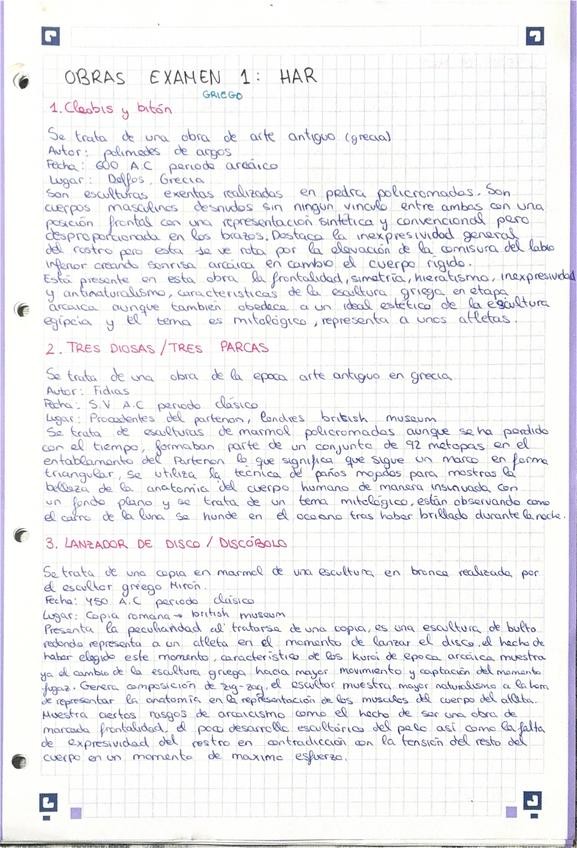 OBRAS EXAMEN 1: HAR
GRIEGO
1. Cleobis y bitón
Se trata de una obra de arte antiguo (grecia)
Autor: polimedes de argos
Fecha: 600 A.C periodo arcáico
Lugar: Delfos, Grecia
Son esculturas exentas realizadas en piedra policromadas. Son
cuerpos masculinos desnudos sin ningún vínculo entre ambos con una
posición frontal con una representación sintética y convencional pero
desproporcionada en los brazos. Destaca la inexpresividad general
del rostro pero esta se ve rota por la elevación de la comisura del labio
inferior creando sonrisa arcáica en cambio el cuerpo rígido.
Está presente en esta obra la frontalidad, simetría, hieratismo, inexpresividad
y antinaturalismo, características de la escultura griega en etapa
arcáica aunque también obedece a un ideal estético de la escultura
egipcia y el tema es mitológico, representa a unos atletas.
2. TRES DIOSAS / TRES PARCAS
Se trata de una obra de la epoca arte antiguo en grecia
Autor: Fidias
Fecha: S.V A.C periodo clásico
Lugar: Procedentes del partenon, londres british museum
Se trata de esculturas de marmol policromadas aunque se ha perdido
con el tiempo, formaban parte de un conjunto de 92 metopas en el
entablamento del Partenon lo que significa que sigue un marco en forma
triangular, se utiliza la técnica de paños mojados para mostrar la
belleza de la anatomía del cuerpo humano de manera insinuada con
un fondo plano y se trata de un tema mitológico, están observando como
el carro de la luna se hunde en el oceano tras haber brillado durante la noche.
3. LANZADOR DE DISCO / DISCÓBOLO
Se trata de una copia en marmol de una escultura en bronce realizada por
el escultor griego Mirón.
Fecha: 450 A.C periodo clásico
Lugar: Copia romana → british museum
Presenta la peculiaridad al tratarse de una copia, es una escultura de bulto
redondo representa a un atleta en el momento de lanzar el disco, el hecho de
haber elegido este momento, característico de los kuroi de epoca arcáica muestra
ya el cambio de la escultura griega hacia mayor movimiento y captación del momento
fugaz. Genera composición de zig-zag, el escultor muestra mayor naturalismo a la hora
de representar la anatomía en la representación de los musculos del cuerpo del atleta.
Muestra ciertos rasgos de arcaicismo como el hecho de ser una obra de
marcada frontalidad, el poco desarrollo escultórico del pelo así como la falta
de expresividad del rostro en contradicción con la tensión del resto del
cuerpo en un momento de maximo esfuerzo.